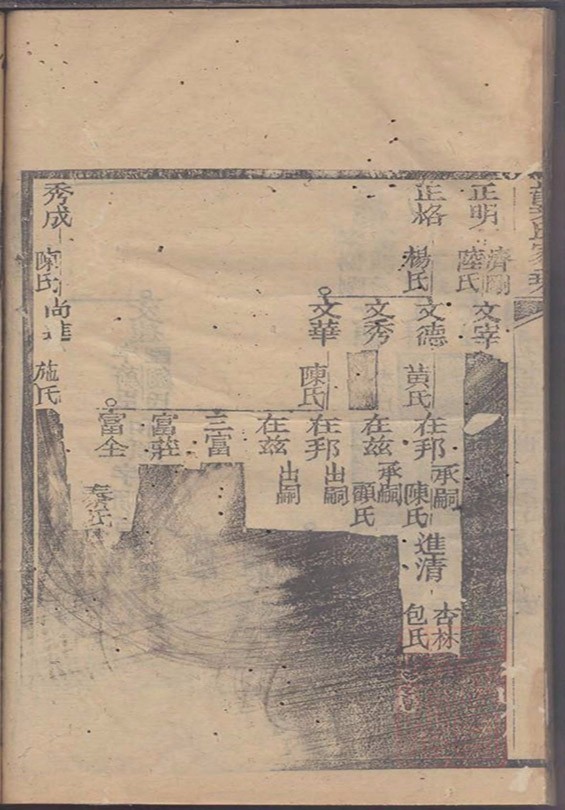 正明
濟剛
陸氏
文宰
正格
楊氏
文德
黄氏
在邦
承嗣
陳氏
進清
杏林
包氏
文秀
在茲
承嗣
顧氏
文華
陳氏
在邦
出嗣
在茲
出嗣
三富
富莊
富全
秀成
陳氏
尚進
施氏